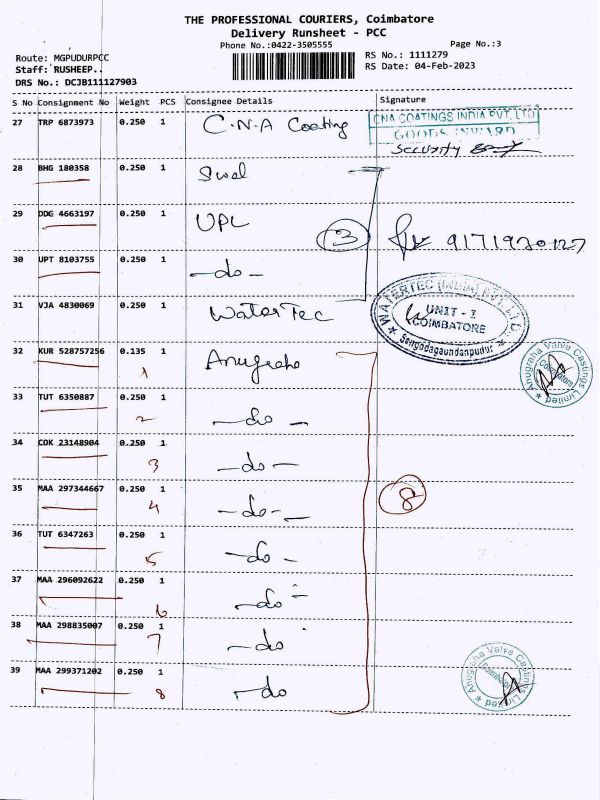 THE PROFESSIONAL COURIERS, Coimbatore
Delivery Runsheet - PCC
Phone No.:0422-3505555
Page No.:3
Route: MGPUDURPCC
RS No.: 1111279
Staff: RUSHEEP..
RS Date: 04-Feb-2023
DRS No.: DCJB111127903
S No Consignment No Weight PCS Consignee Details Signature
27 TRP 6873973 0.250 1 C.N.A Coating
CNA COATINGS INDIA PVT. LTD
GOODS INWARD
Security
28 BHG 180358 0.250 1
29 DDG 4663197 0.250 1 UPL
3 9171920127
30 UPT 8103755 0.250 1 -do-
31 VJA 4830069 0.250 1 WaterTec
WATERTEC (INDIA) PVT. LTD.
UNIT - I
COIMBATORE
Sengodagaundanpudur
32 KUR 528757256 0.135 1 Anugraha
1
Anugraha Valve Castings Limited
Coimbatore
33 TUT 6350887 0.250 1 -do-
2
34 COK 23148904 0.250 1 -do-
3
35 MAA 297344667 0.250 1 -do-
4
8
36 TUT 6347263 0.250 1 -do-
5
37 MAA 296092622 0.250 1 -do-
6
38 MAA 298835007 0.250 1 -do
7
39 MAA 299371202 0.250 1 -do
8
Anugraha Valve Castings Limited
Coimbatore